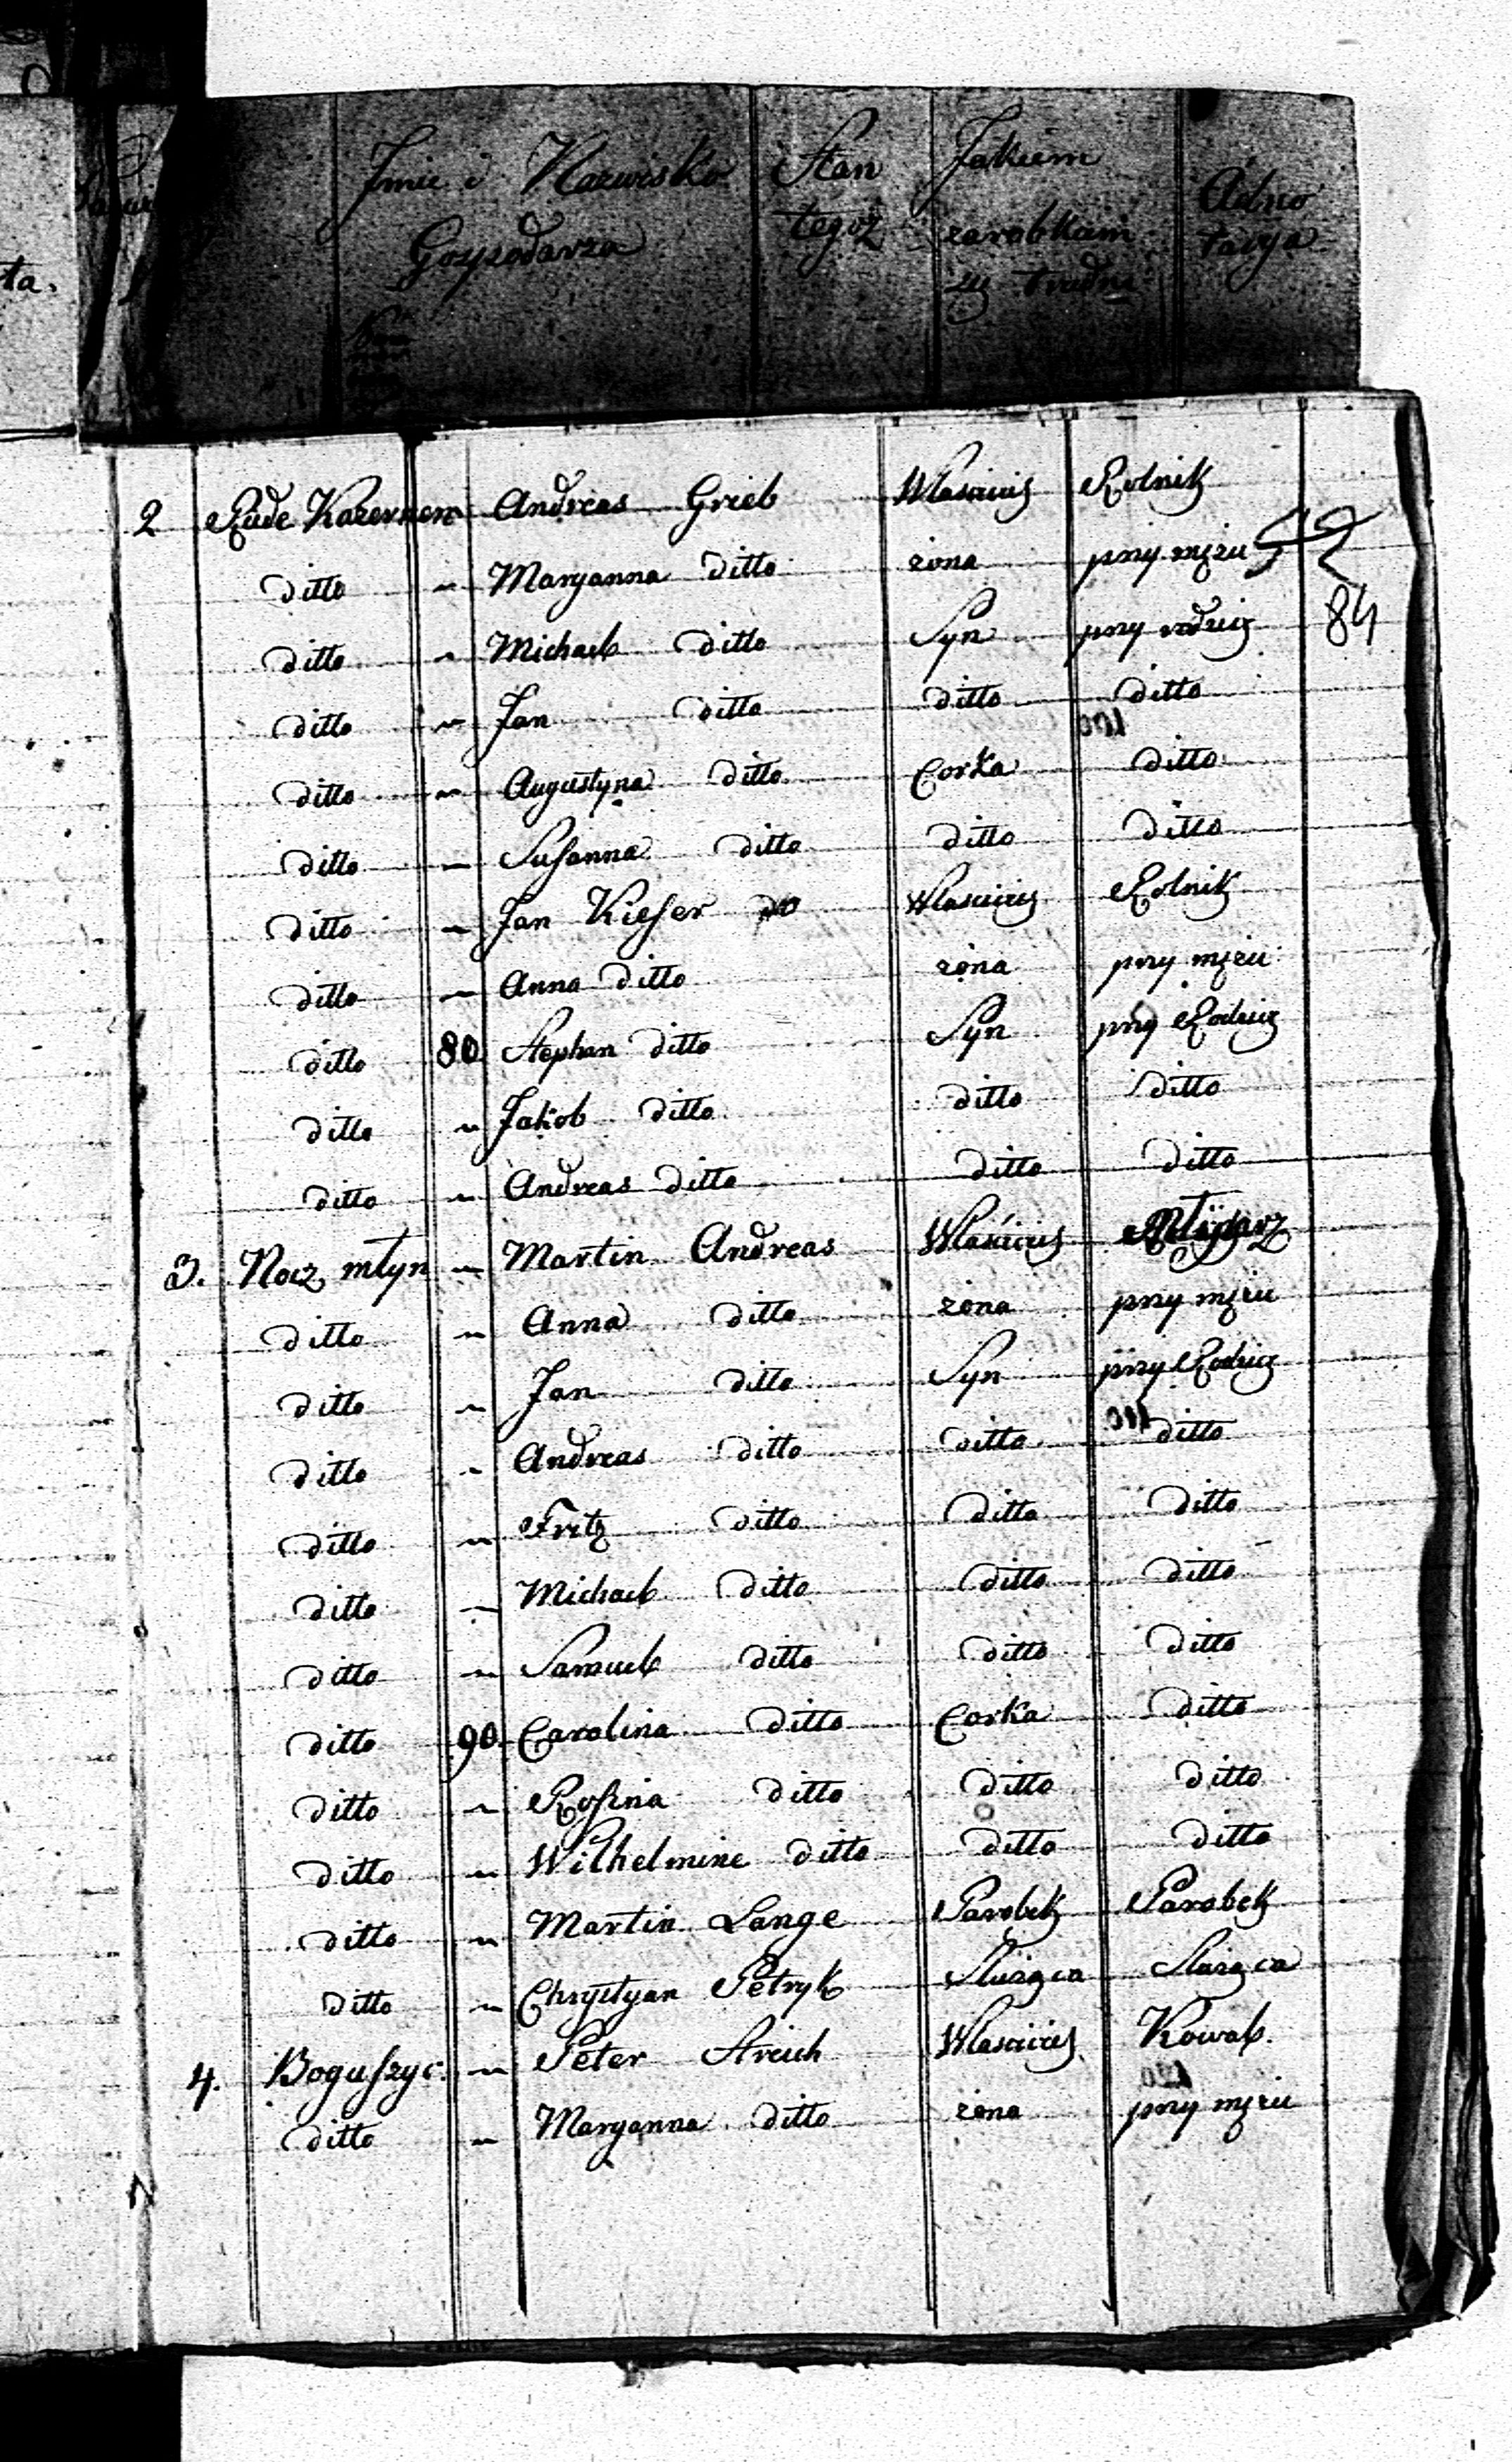 Imie i Nazwisko Gospodarza | Stan tegoż | Jakiem zarobkiem się trudni | Adnotacya
2 Rüde Kazernen Andreas Grieb Własciciel Rolnik
ditto " Maryanna ditto żona przy mężu
ditto " Michael ditto Syn przy rodzic 84
ditto " Jan ditto ditto ditto
ditto " Augustyna ditto Corka ditto
ditto " Susanna ditto ditto ditto
ditto " Jan Kieser Własciciel Rolnik
ditto " Anna ditto żona przy mężu
ditto 80 Stephan ditto Syn przy Rodzic
ditto " Jakob ditto ditto ditto
ditto " Andreas ditto ditto ditto
3. Nocz młyn " Martin Andreas Właściciel Młynarz
ditto " Anna ditto żona przy mężu
ditto " Jan ditto Syn przy Rodzic
ditto " Andreas ditto ditto ditto
ditto " Fritz ditto ditto ditto
ditto " Michael ditto ditto ditto
ditto " Samuel ditto ditto ditto
ditto 90 Carolina ditto Corka ditto
ditto " Rosina ditto ditto ditto
ditto " Wilhelmine ditto ditto ditto
ditto " Martin Lange Parobek Parobek
ditto " Chrystyan Petryk Służąca Służąca
4. Boguszyc. " Peter Streich Własciciel Kowal.
ditto " Maryanna ditto żona przy mężu